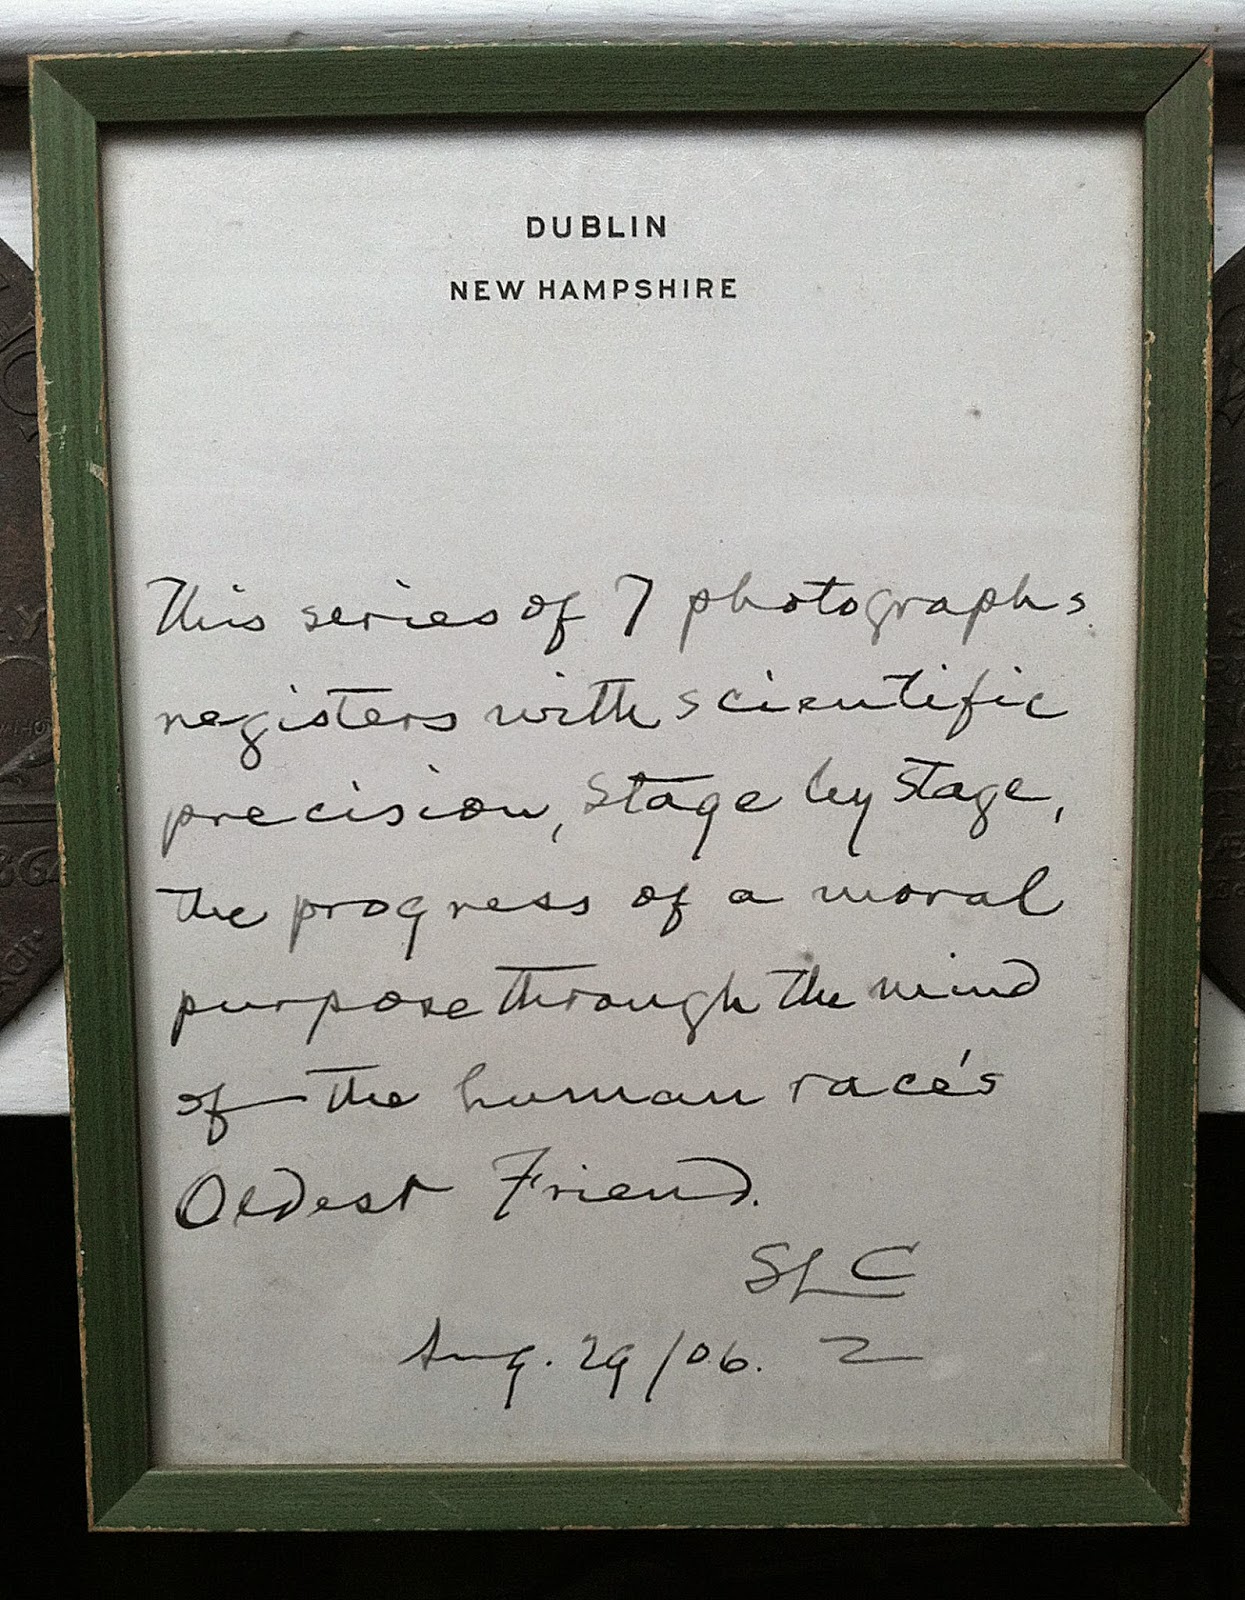 DUBLIN
NEW HAMPSHIRE
This series of 7 photographs
registers with scientific
precision, stage by stage,
the progress of a moral
purpose through the mind
of the human race's
Oldest Friend.
SLC
Aug. 29/06.